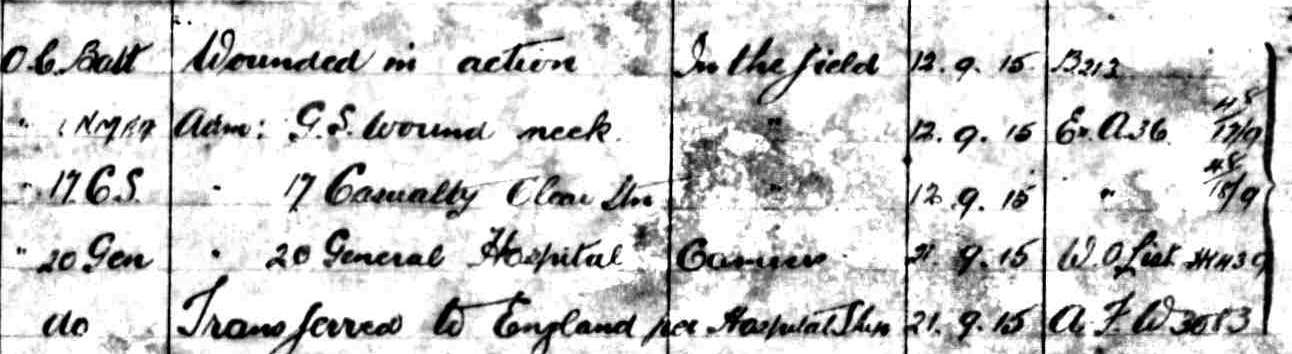 O.C. Batt Wounded in action In the field 12.9.15 B213
" Adm: G.S. wound neck. " 12.9.15 En. A36 17/9
" 17 C.S. " 17 Casualty Clear Stn " 12.9.15 " 18/9
" 20 Gen " 20 General Hospital Camiers 9.15 W.O List
do Transferred to England per Hospital Ship 21.9.15 A.F.W 3083